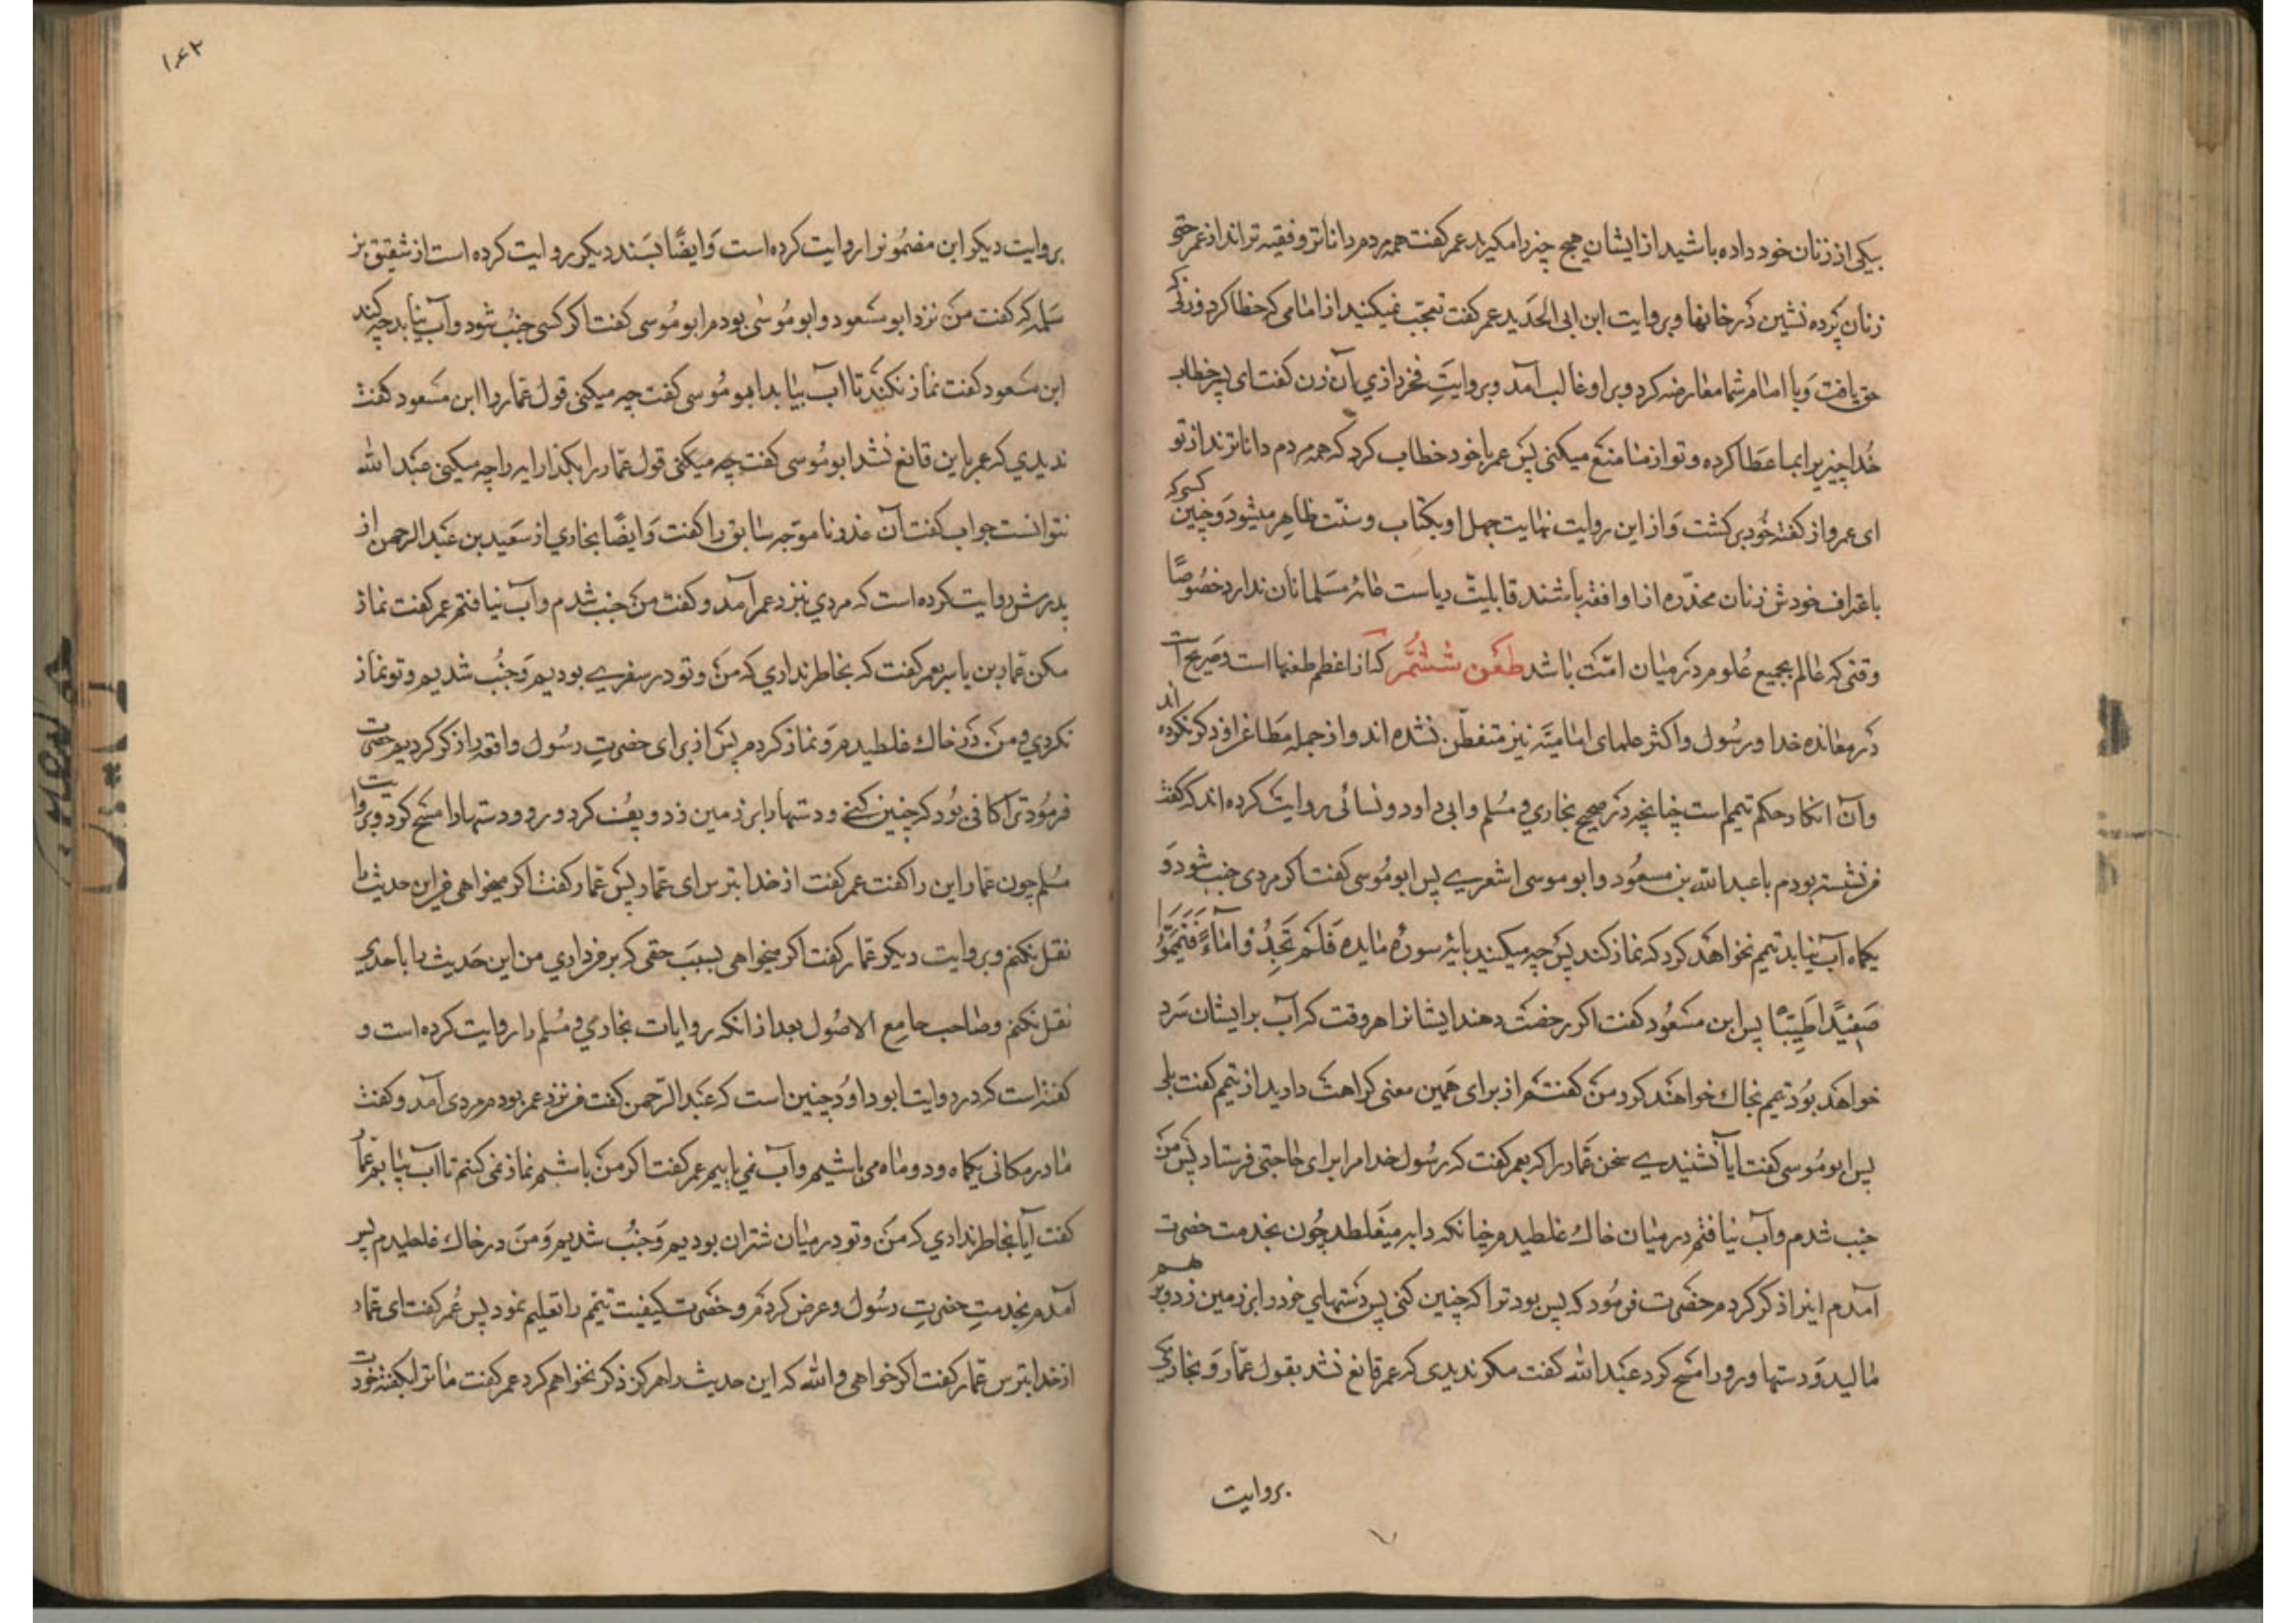 بیکی از زنان خود داده باشید از ایشان هیچ چیز وامکیرید عمر کفت همه مردم داناتر و فقیه تراند از عمر حتی
زنان پرده نشین در خانها و بروایت ابن ابی الحدید عمر کفت تعجب نمیکنید از امامی که خطا کرد و زنی که
حق یافت و با امام شما معارضه کرد و بر او غالب آمد و بروایت فخر رازی آن زن کفت ای پسر خطاب
خدا چیزیرا بما عطا کرده و تو از ما منع میکنی پس عمر با خود خطاب کرد که همه مردم داناترند از تو
ای عمر و از کفته خود برکشت و از این روایت نهایت جهل او بکتاب و سنت ظاهر میشود و چنین کسی که
باعتراف خودش زنان مخدره از او افقه باشند قابلیت ریاست عامه مسلمانان ندارد خصوصًا
وقتی که عالم بجمیع علوم در میان امت باشد طعن ششم که از اعظم طعنها است و صریح است
در معانده خدا و رسول و اکثر علمای امامیّه نیز متفطّن نشده اند و از جمله مطاعن او ذکر نکرده اند
و آن انکار حکم تیمم است چنانچه در صحیح بخاری و مسلم و ابی داود و نسائی روایت کرده اند که کفت
نشسته بودم با عبدالله بن مسعود و ابو موسی اشعری پس ابو موسی کفت اکر مردی جنب شود و
یکماه آب نیابد تیمم نخواهد کرد که نماز کند پس چه میکنید بایه سوره مایده فَلَمْ تَجِدُوا مَاءً فَتَيَمَّمُوا
صَعِيدًا طَيِّبًا پس ابن مسعود کفت اکر رخصت دهند ایشانرا هر وقت که آب بر ایشان سرد
خواهد بود تیمم بخاک خواهند کرد من کفتم از برای همین معنی کراهت دارید از تیمم کفت بلی
پس ابو موسی کفت ایا نشنیدی سخن عمار را که بعمر کفت که رسول خدا مرا برای حاجتی فرستاد پس من
جنب شدم و آب نیافتم در میان خاک غلطیدم چنانکه دابه میغلطد چون بخدمت حضرت
آمدم اینرا ذکر کردم حضرت فرمود که بس بود ترا که چنین کنی پس دستهای خود را بر زمین زد و بر هم
مالید و دستها و رو را مسح کرد عبدالله کفت مکر ندیدی که عمر قانع نشد بقول عمّار و بخاری
بروایت
۱۴۲
بروایت دیکر این مضمونرا روایت کرده است و ایضًا بسند دیکر روایت کرده است از شقیق بن
سلمه که کفت من نزد ابو مسعود و ابو موسی بودم ابو موسی کفت اکر کسی جنب شود و آب نیابد چه کند
ابن مسعود کفت نماز نکند تا آب بیابد ابو موسی کفت چه میکنی قول عمار را ابن مسعود کفت
ندیدی که عمر باین قانع نشد ابو موسی کفت چه میکنی قول عمار را بکذار ایه را چه میکنی عبدالله
نتوانست جواب کفت آن عذر ناموجه سابق را کفت و ایضًا بخاری از سعید بن عبد الرحمن از
پدرش روایت کرده است که مردی بنزد عمر آمد و کفت من جنب شدم و آب نیافتم عمر کفت نماز
مکن عمار بن یاسر بعمر کفت که بخاطر نداری که من و تو در سفری بودیم و جنب شدیم و تو نماز
نکردی و من در خاک غلطیدم و نماز کردم پس از برای حضرت رسول واقعه را ذکر کردیم حضرت
فرمود ترا کافی بود که چنین کنی و دستها را بر زمین زد و پف کرد و رو و دستها را مسح کرد و بروایت
مسلم چون عمار این را کفت عمر کفت از خدا بترس ای عمار پس عمار کفت اکر میخواهی من این حدیث را
نقل نکنم و بروایت دیکر عمار کفت اکر میخواهی بسبب حقی که بر من داری من این حدیث را با احدی
نقل نکنم و صاحب جامع الاصول بعد از آنکه روایات بخاری و مسلم را روایت کرده است و
کفته است که در روایت ابو داود چنین است که عبد الرحمن کفت من نزد عمر بودم مردی آمد و کفت
ما در مکانی یکماه و دو ماه می باشیم و آب نمی یابیم عمر کفت اکر من باشم نماز نمی کنم تا آب بیابم عمار
کفت آیا بخاطر نداری که من و تو در میان شتران بودیم و جنب شدیم و من در خاک غلطیدم پس
آمدم بخدمت حضرت رسول و عرض کردم و حضرت کیفیت تیمم را تعلیم نمود پس عمر کفت ای عمار
از خدا بترس عمار کفت اکر خواهی والله که این حدیث را هرکز ذکر نخواهم کرد عمر کفت ما ترا بکفته خودت